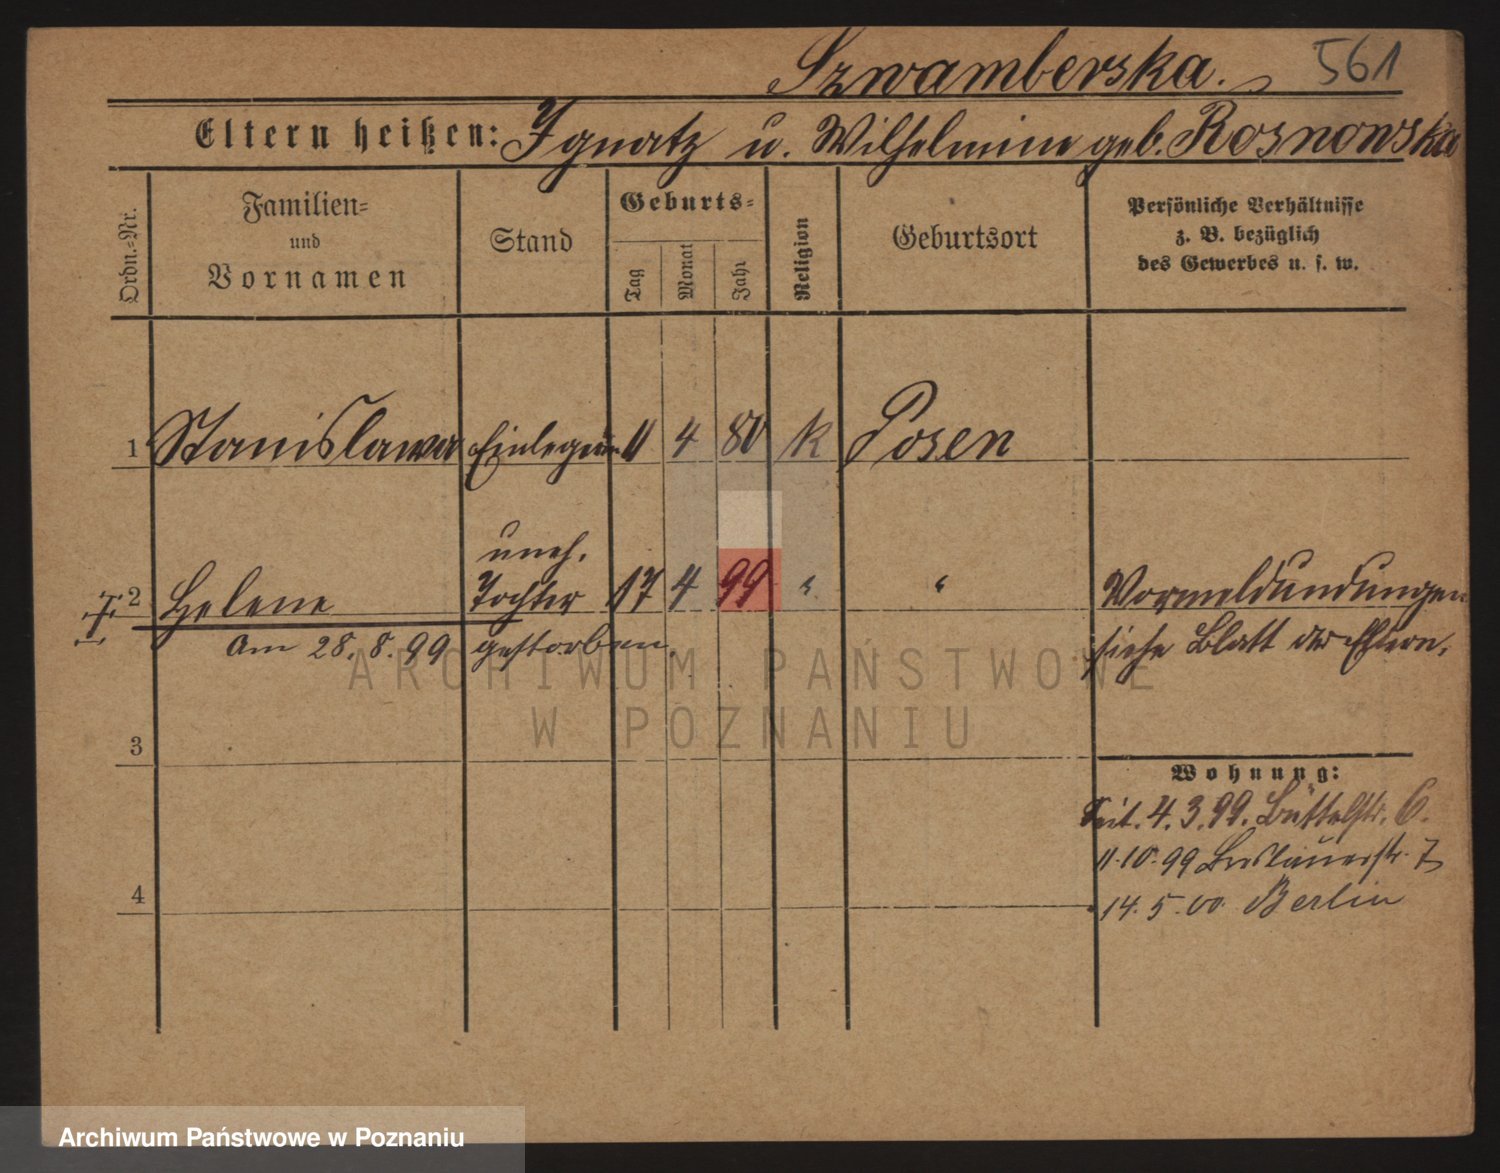 Szwamberska. 561
Eltern heißen: Ignatz u. Wilhelmine geb. Rosnowska
Ordn.=Nr.
Familien=
und
Vornamen
Stand
Geburts=
Tag
Monat
Jahr
Religion
Geburtsort
Persönliche Verhältnisse
z. B. bezüglich
des Gewerbes u. s. w.
1 Stanislawa 11 4 80 k Posen
uneh.
2 Helene Tochter 17 4 99 " " Vormeldundungen
am 28.8.99 gestorben. siehe Blatt der Eltern.
3
Wohnung:
Seit. 4.3.99. Büttelstr. 6.
11.10.99 Breslauerstr. 7
4
14.5.00. Berlin
ARCHIWUM PAŃSTWOWE
W POZNANIU
Archiwum Państwowe w Poznaniu